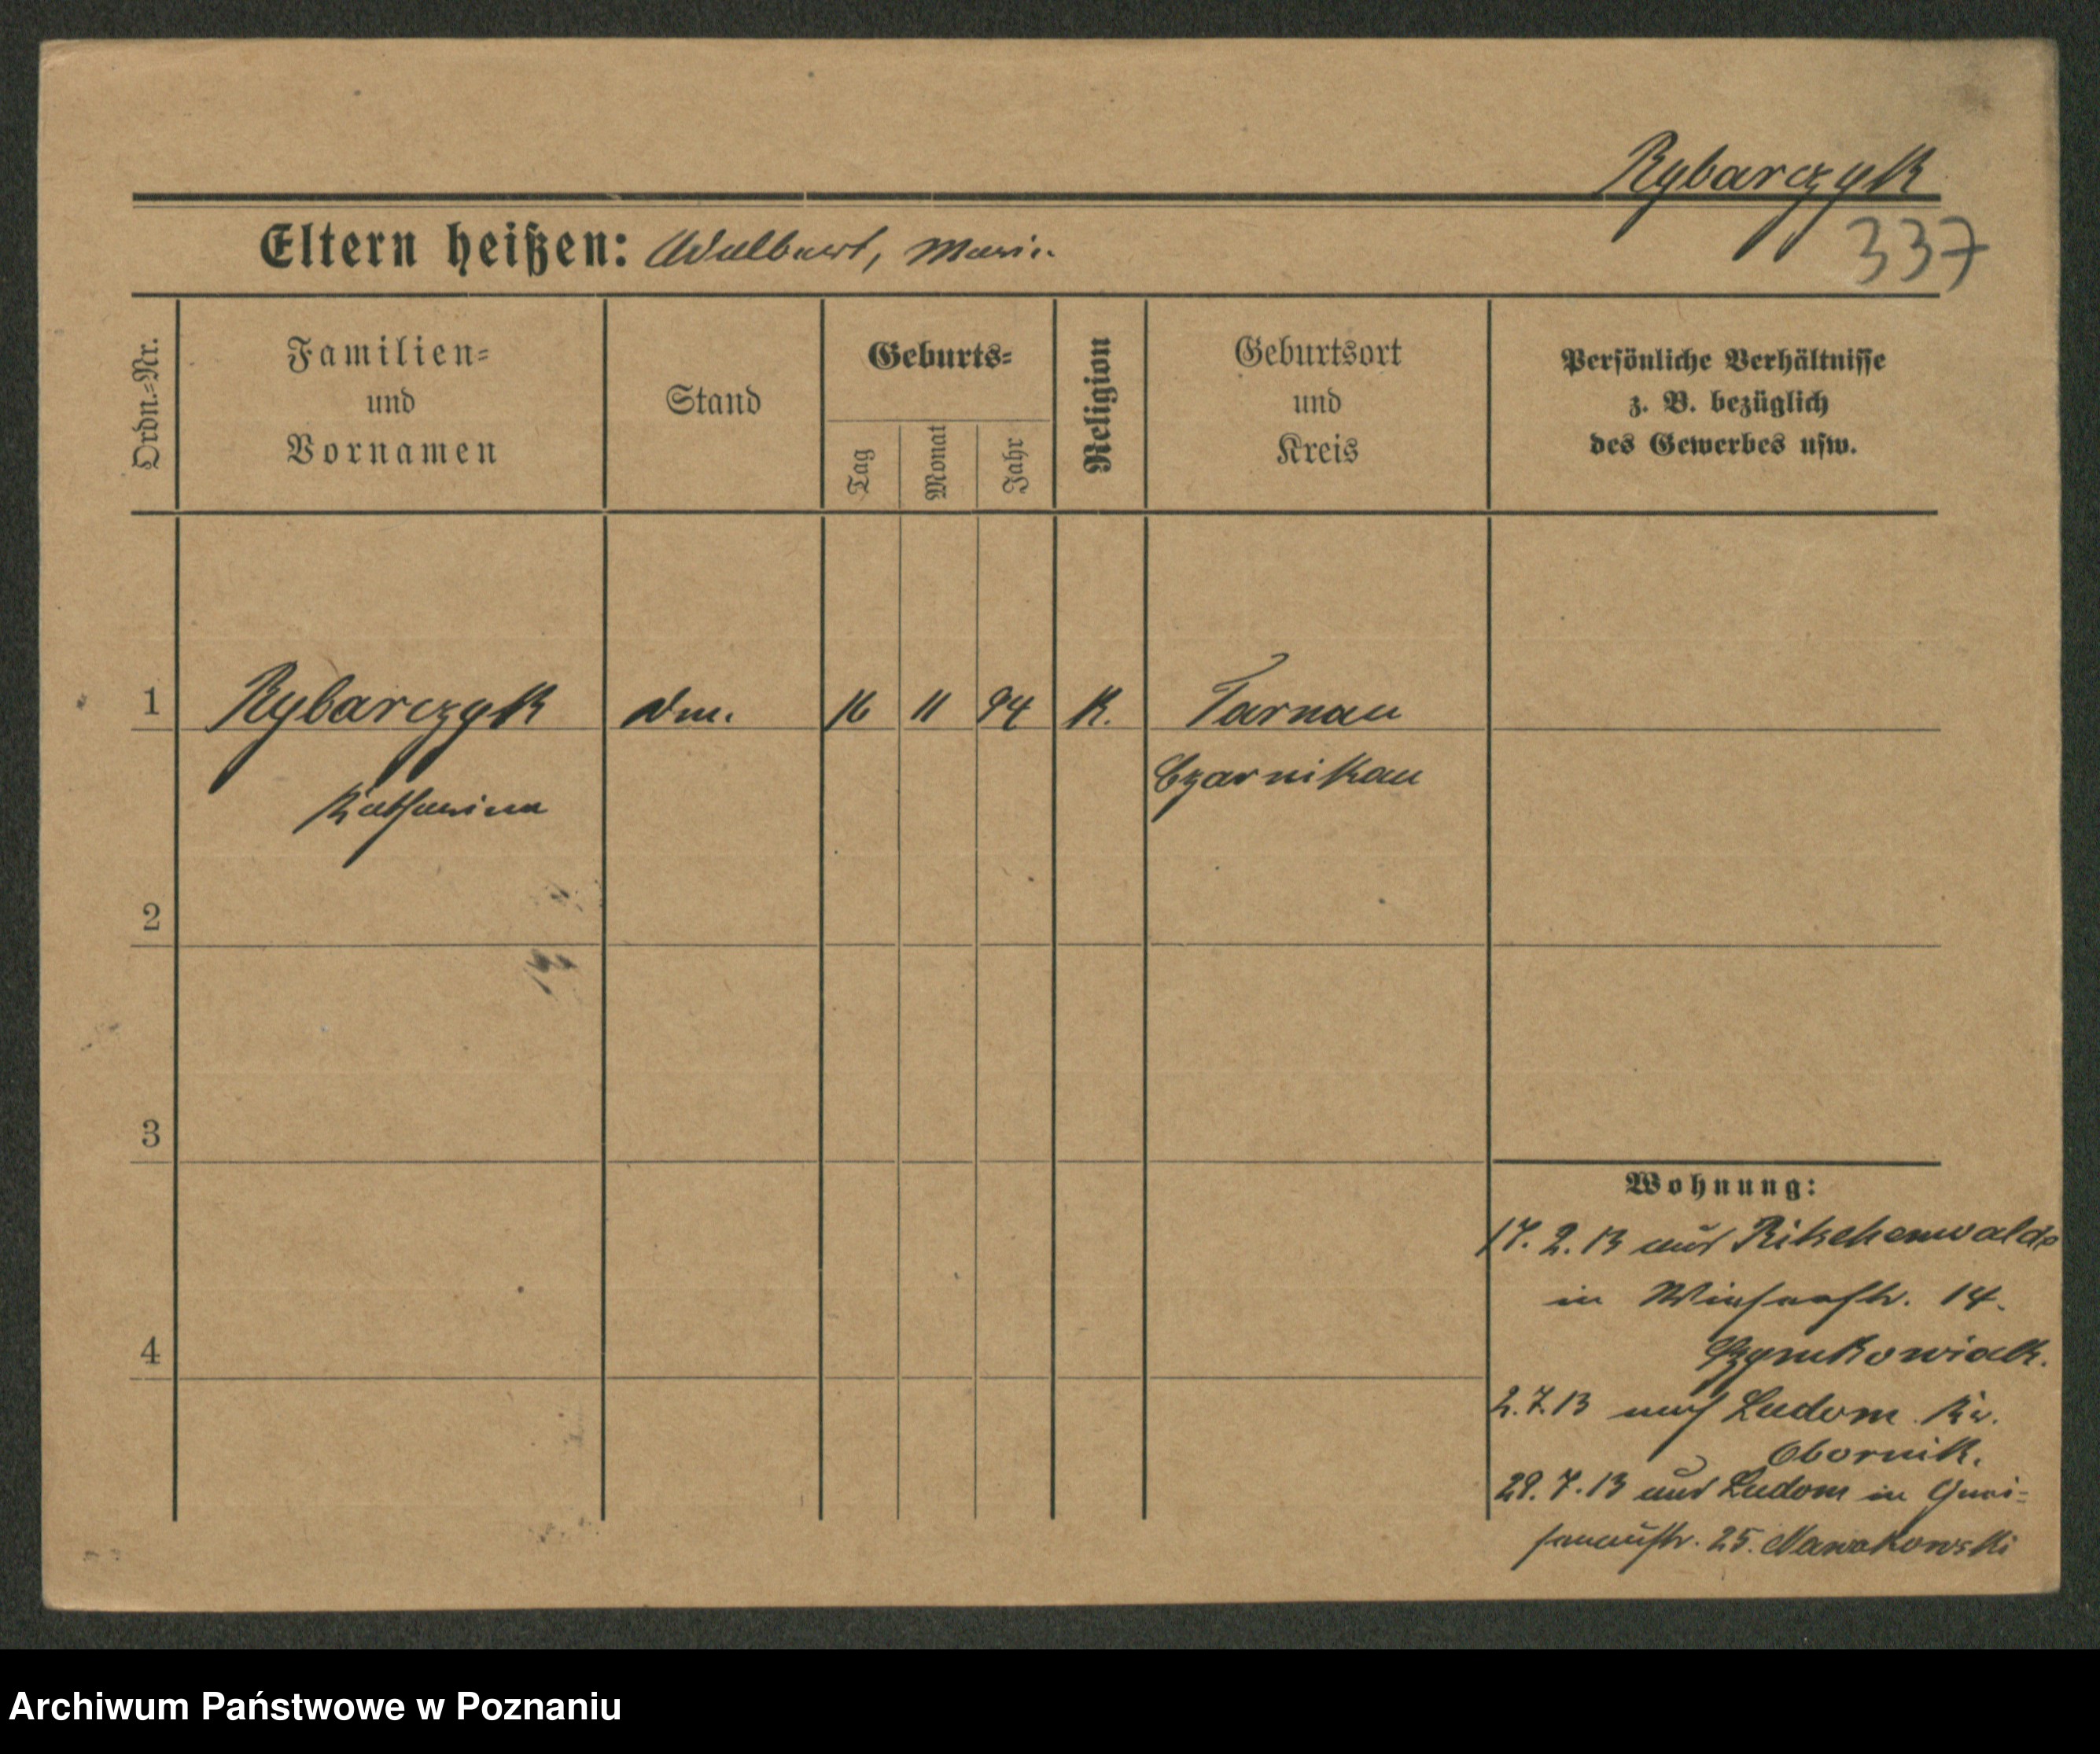 Rybarczyk
337
Eltern heißen: Adalbert, Marie
Ordn.=Nr.
Familien=
und
Vornamen
Stand
Geburts=
Tag
Monat
Jahr
Religion
Geburtsort
und
Kreis
Persönliche Verhältnisse
z. B. bezüglich
des Gewerbes usw.
1 Rybarczyk 16 11 94 K. Tarnau
Katharina Czarnikau
2
3
4
Wohnung:
17. 2. 13 aus Ritschenwalde
in 14.
Szymkowiak.
2. 7. 13 nach Ludom Kr.
Obornik.
29. 7. 13 aus Ludom in Gnei=
senaustr. 25. Nawakowski
Archiwum Państwowe w Poznaniu